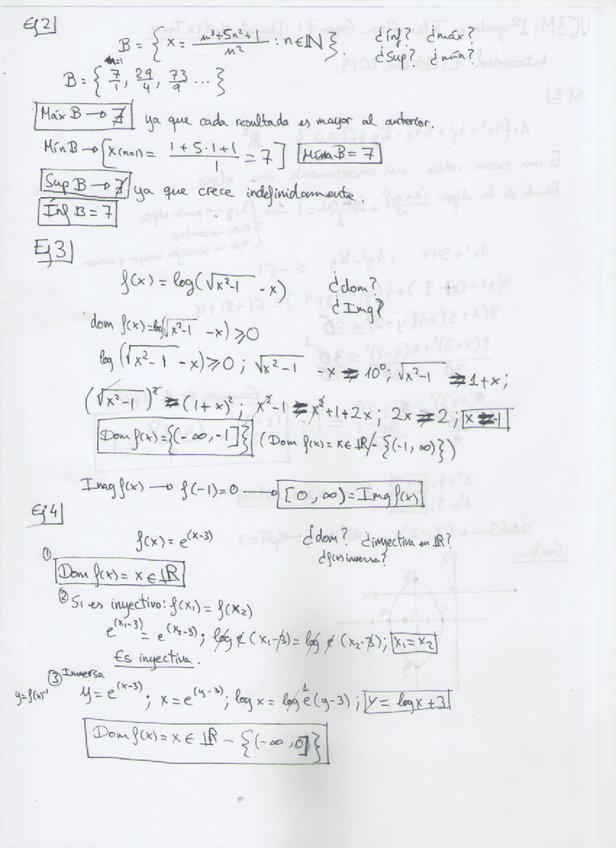 Ej 2]
B = { x = n³+5n²+1 / n² : n∈ℕ }. ¿ínf? ¿máx?
¿Sup? ¿mín?
n=1
B = { 7/1, 29/4, 73/9 ... }
Máx B → ∄ ya que cada resultado es mayor al anterior.
Mín B → [ x(n=1) = 1+5·1+1 / 1 = 7 ] Mín B = 7
Sup B → ∄ ya que crece indefinidamente.
Ínf B = 7
Ej 3]
f(x) = log(√x²-1 - x) ¿dom?
¿Img?
dom f(x) = log(√x²-1 - x) ≥ 0
log (√x²-1 - x) ≥ 0 ; √x²-1 - x ≥ 10⁰ ; √x²-1 ≥ 1+x ;
(√x²-1)² ≥ (1+x)² ; x²-1 ≥ x²+1+2x ; 2x ≤ 2 ; x ≤ -1
Dom f(x) = {(-∞, -1]} (Dom f(x) = x∈ℝ - {(-1, ∞)})
Img f(x) → f(-1) = 0 → [0, ∞) = Img f(x)
Ej 4]
f(x) = e^(x-3) ¿dom? ¿inyectiva en ℝ?
¿f(x) inversa?
①
Dom f(x) = x ∈ ℝ
② Si es inyectivo: f(x₁) = f(x₂)
e^(x₁-3) = e^(x₂-3) ; log e (x₁-3) = log e (x₂-3) ; x₁ = x₂
Es inyectiva.
③ Inversa
y=f(x)⁻¹ y = e^(x-3) ; x = e^(y-3) ; log x = log e (y-3) ; y = log x + 3
Dom f(x) = x ∈ ℝ - {(-∞, 0]}